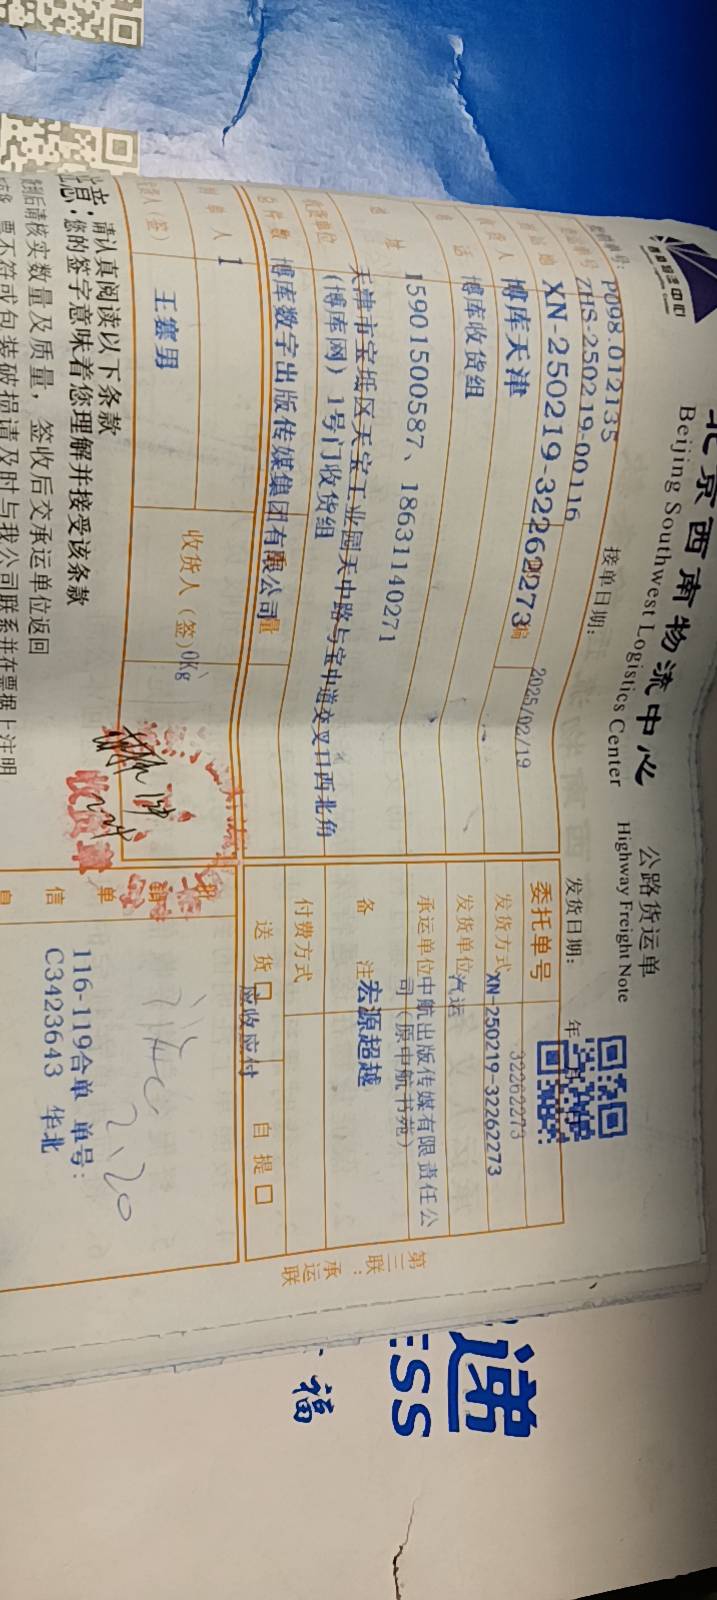 北京西南物流中心 公路货运单
Beijing Southwest Logistics Center Highway Freight Note
P098.012135
ZHS-250219-00116
接单日期: 2025/02/19
发货日期: 年
XN-250219-32262273
博库天津
博库收货组
话
15901500587、18631140271
址
天津市宝坻区天宝工业园天中路与宝中道交叉口西北角
(博库网) 1号门收货组
收货单位
博库数字出版传媒集团有限公司
总件数
量
1
0Kg
王赛男
收货人(签)
委托单号
32262273
XN-250219-32262273
发货方式
汽运
发货单位
中航出版传媒有限责任公
司(原中航书苑)
承运单位
宏源超越
备 注
付费方式
应收应付
送 货 □ 自 提 □
第三联:承运联
收货章
单
信
息
2.20
116-119合单 单号:
C3423643 华北
请认真阅读以下条款
您的签字意味着您理解并接受该条款
后请核实数量及质量, 签收后交承运单位返回
票不符或包装破损请及时与我公司联系并在票据上注明
递
ESS
福